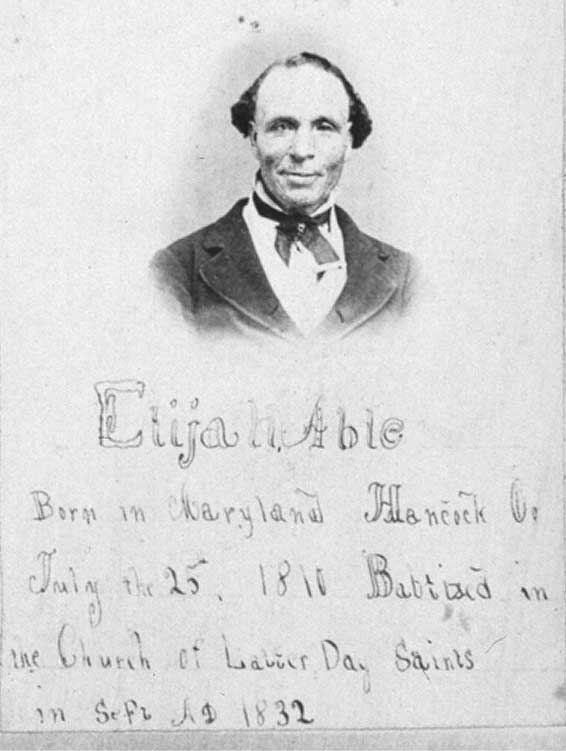 Elijah Able
Born in Maryland Hancock Co
July the 25st, 1810 Babtized in
the Church of Latter Day Saints
in Sept AD 1832